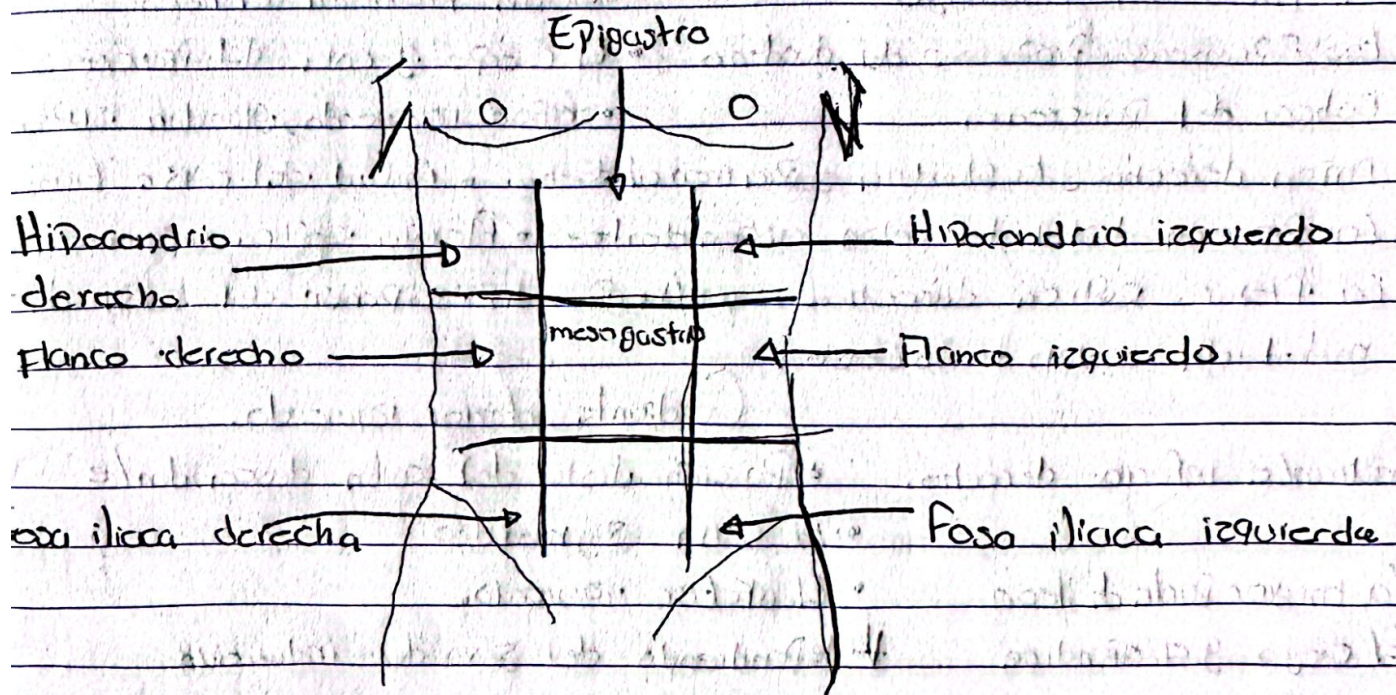 Epigastro
Hipocondrio
derecho
Hipocondrio izquierdo
mesogastrio
Flanco derecho
Flanco izquierdo
osa iliaca derecha
Fosa iliaca izquierda